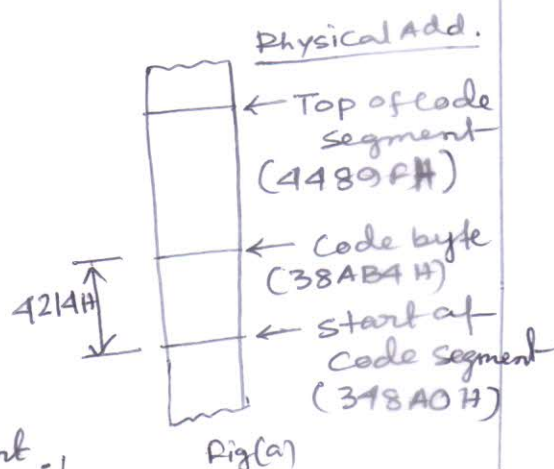 Physical Add.
← Top of code
segment
(4489FH)
← Code byte
(38AB4H)
4214H
← Start of
Code segment
(348A0H)
Fig(a)